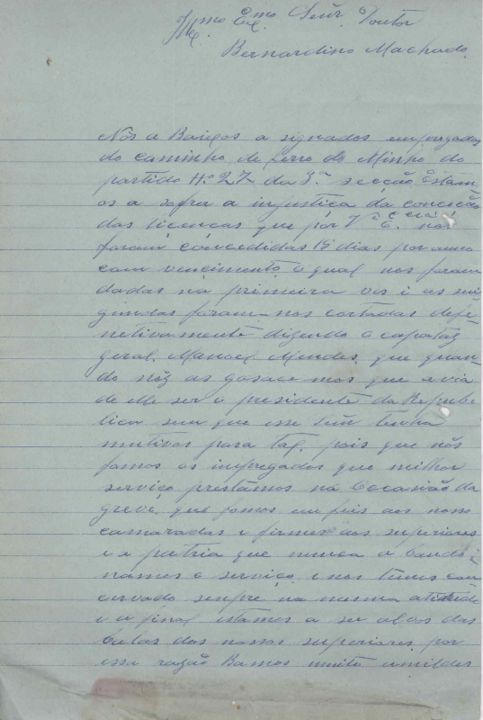 Illmo Exmo Senr Doutor
Bernardino Machado
Nós a Baixos a signados impregados
do caminho de ferro do Minho do
partido N.º 27 da 3.ª secção estam
os a sofrer a injustiça da conceção
das licenças que por V.ª Ex.cia nos
foram concedidas 15 dias por anno
com vencimento o qual nos foram
dadas na primeira vos i as sui
gundas foram-nos cortadas defe
netivamente dizendo o capataz
geral, Manoel Mendes, que quan
do nóz as gosace mos que avia
de elle ser o presidente da Repube
lica sem que esse senr tenha
mutivos para tal, pois que nós
fomos os impregados que milhor
serviço prestámos na ocasião da
greve, que fomos un fieis aos nosso
camaradas e firmes aos superiores
i a patria que nunca a bando
namos o serviço, e nos temos con
cervado sempre na mesma atitude
i a final estamos a ser alvos das
balas dos nossos superiores, por
essa razão Bamos muito umildes